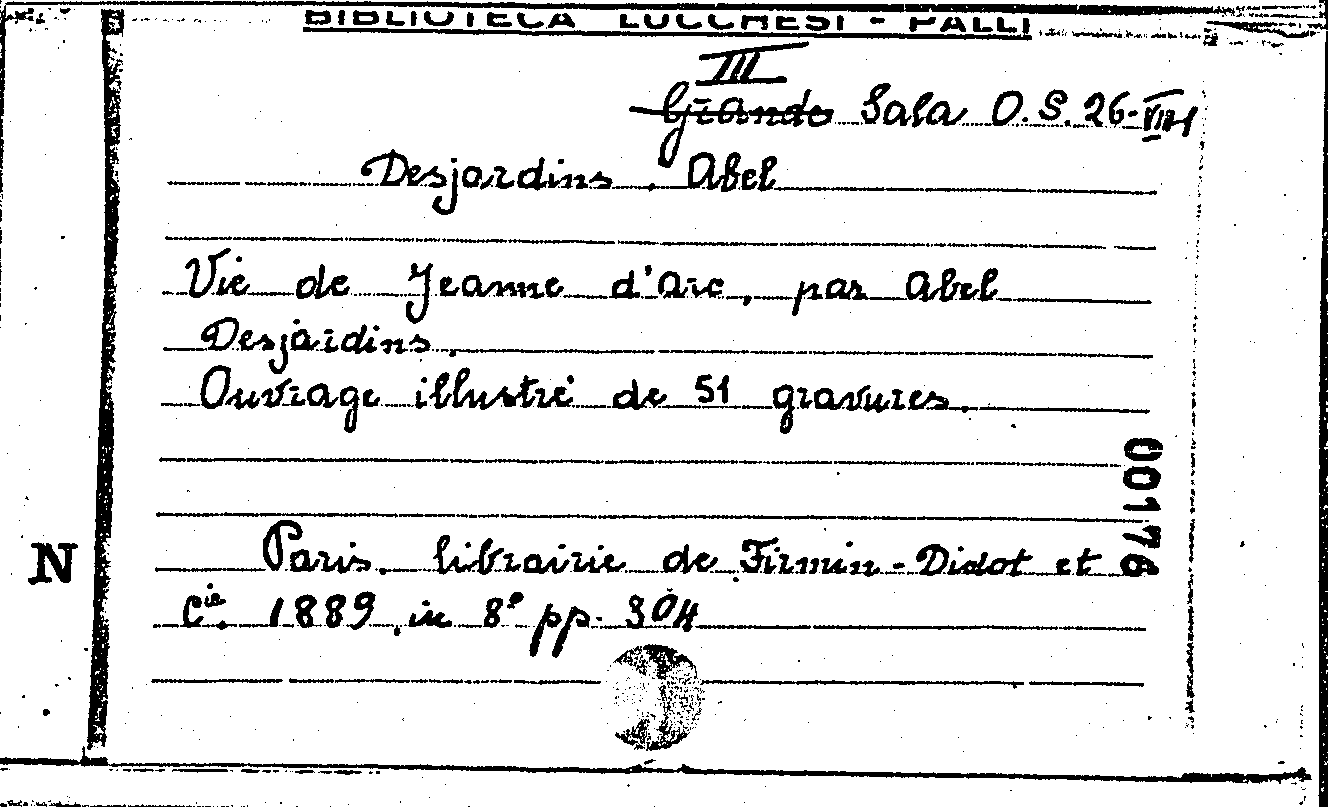 BIBLIOTECA LUCCHESI - PALLI
III
Grande Sala O.S. 26-VIII-1
Desjardins. Abel
Vie de Jeanne d'Arc, par Abel
Desjardins.
Ouvrage illustré de 51 gravures.
00176
N
Paris. librairie de Firmin-Didot et
Cie. 1889, in 8° pp. 304